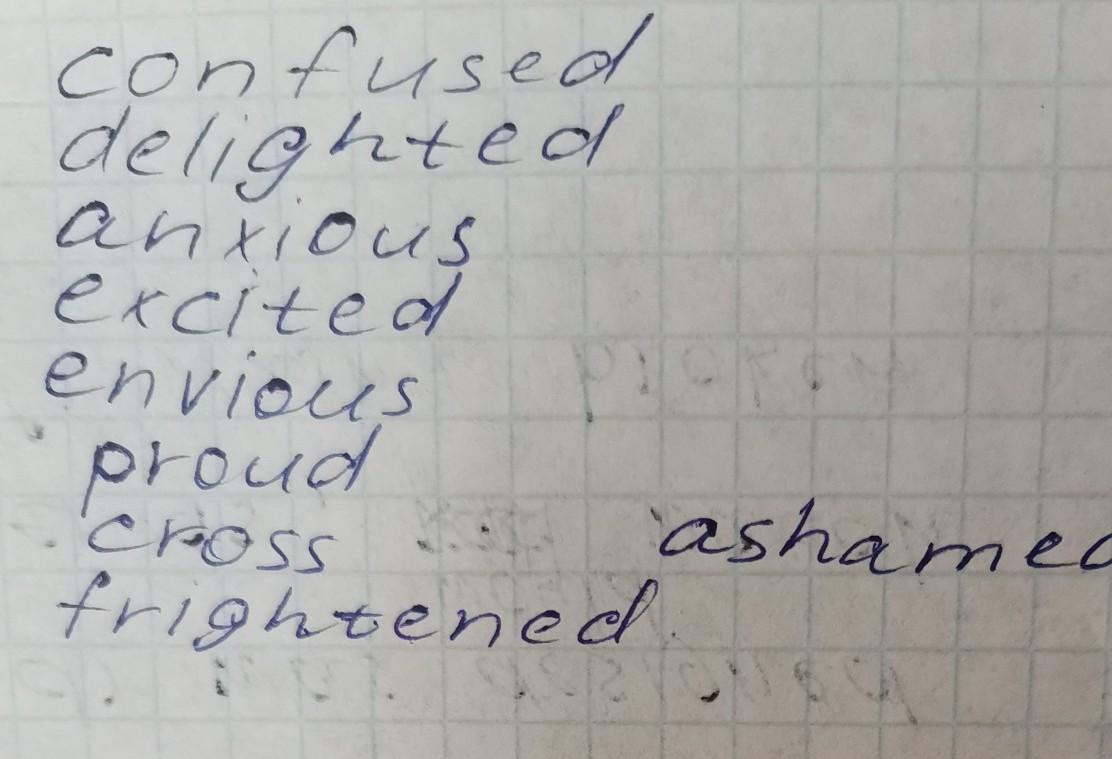 confused
delighted
anxious
excited
envious
proud
cross ashamed
frightened